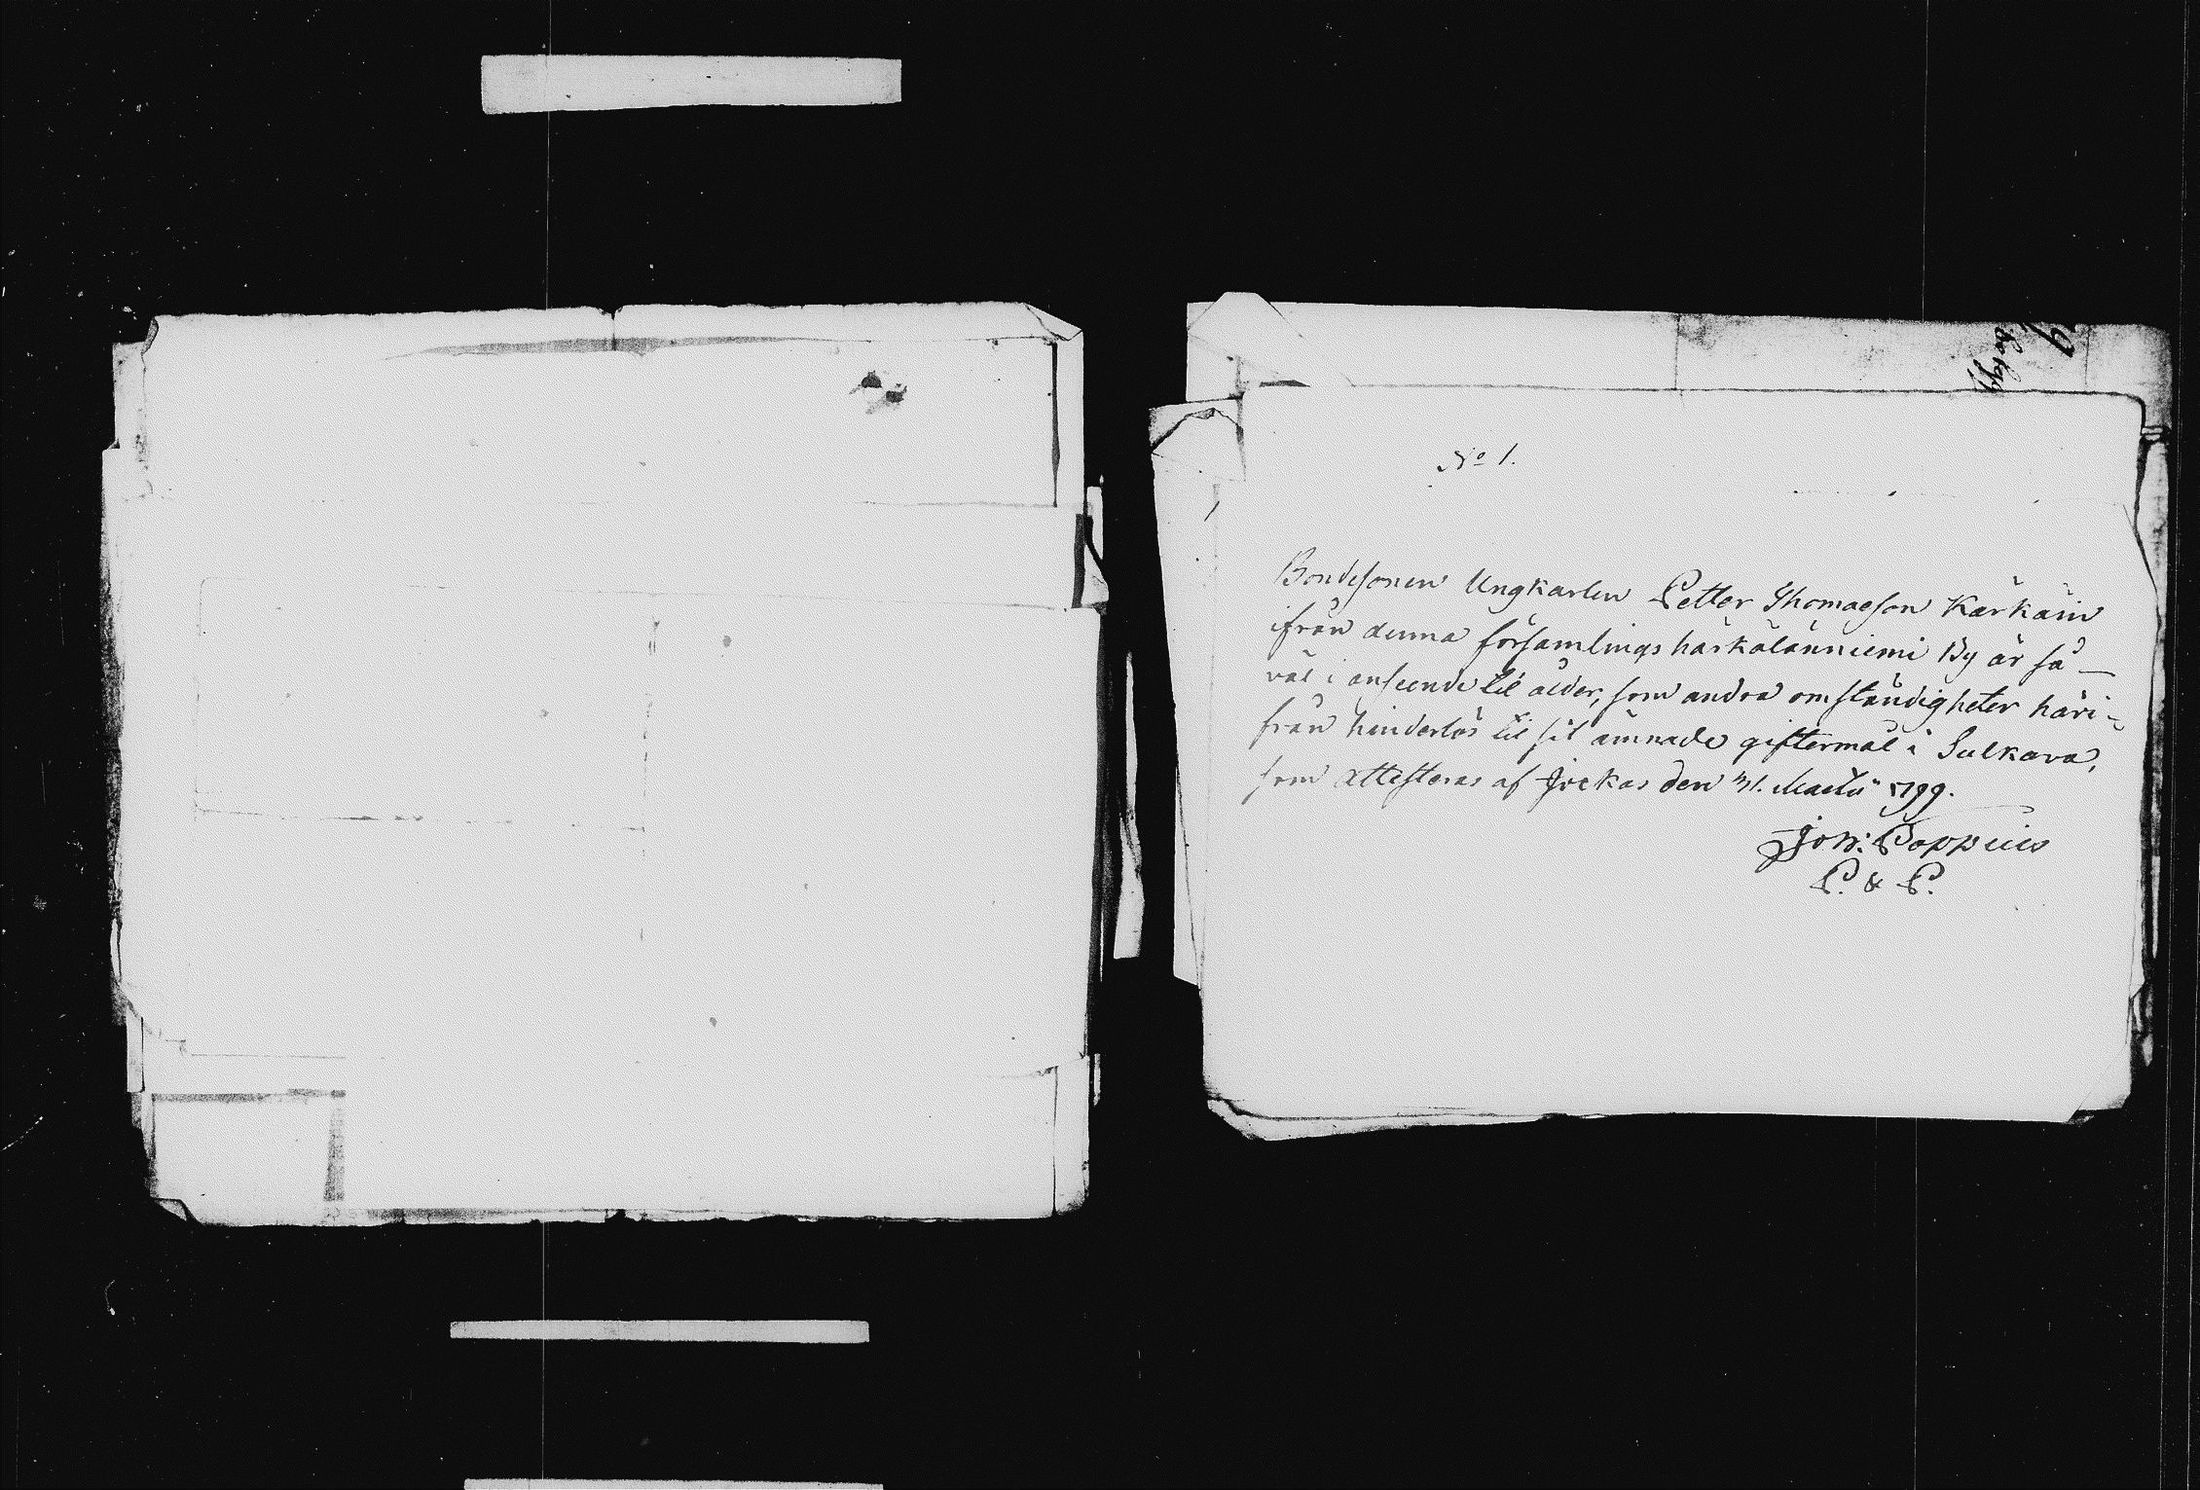 No 1.
Bondesonen Ungkarlen Petter Thomaeson Kärkäin
ifrån denna församlings härkälänniemi By är så
väl i anseende til ålder, som andra omständigheter häri-
från hinderlös til sit ämnade giftermål i Sulkava,
som attesteras af Jockas den 31. Martii 1799.
Joh: Poppius
P. & P.